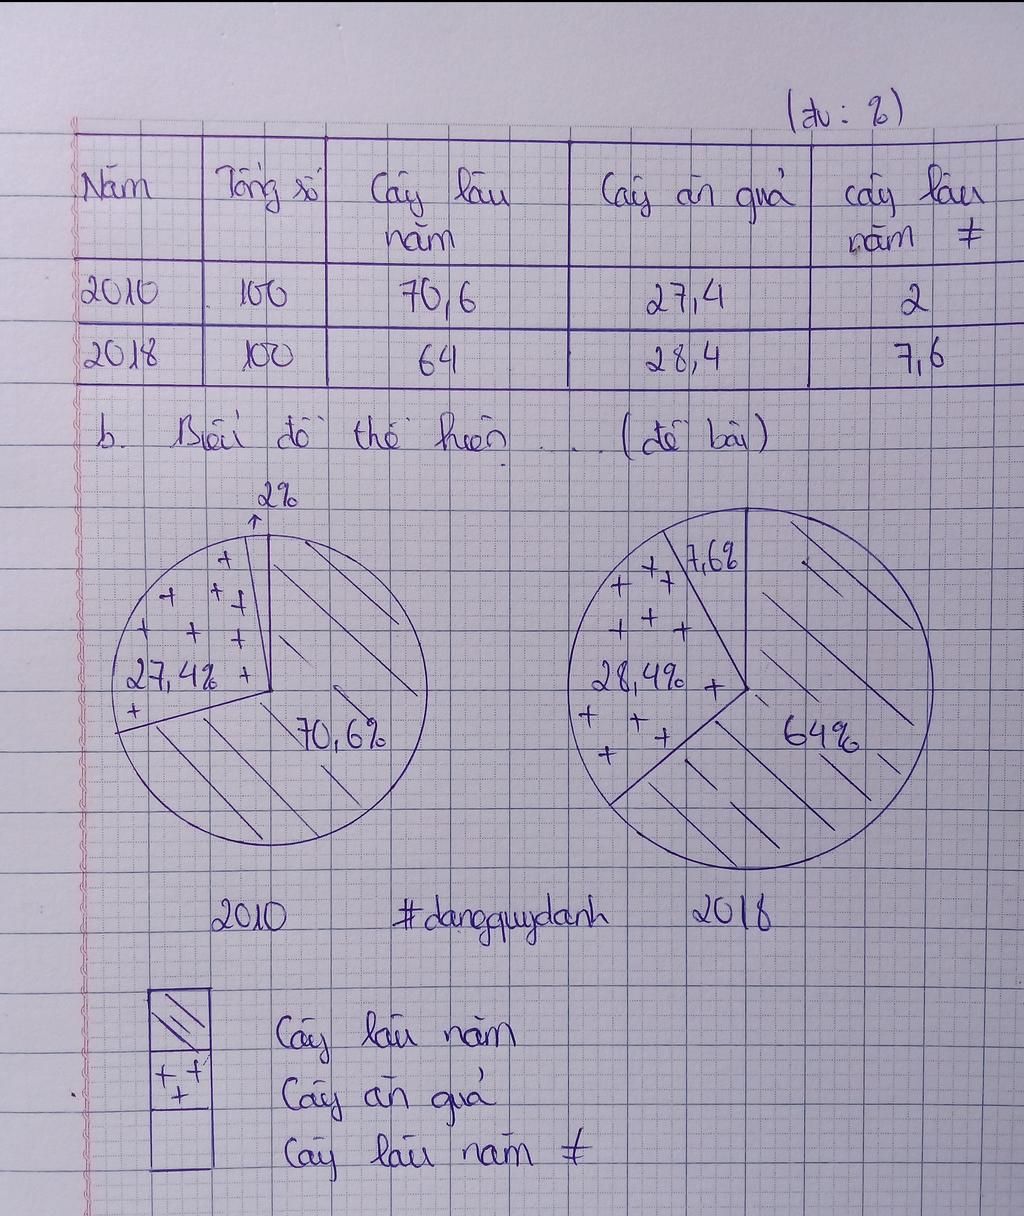 (đv: %)
Năm Tổng số Cây lâu năm Cây ăn quả cây lâu năm ≠
2010 100 70,6 27,4 2
2018 100 64 28,4 7,6
b. Biểu đồ thể hiện .... (đề bài)
2%
27,4%
70,6%
7,6%
28,4%
64%
2010 #dangquydanh 2018
Cây lâu năm
Cây ăn quả
Cây lâu năm ≠